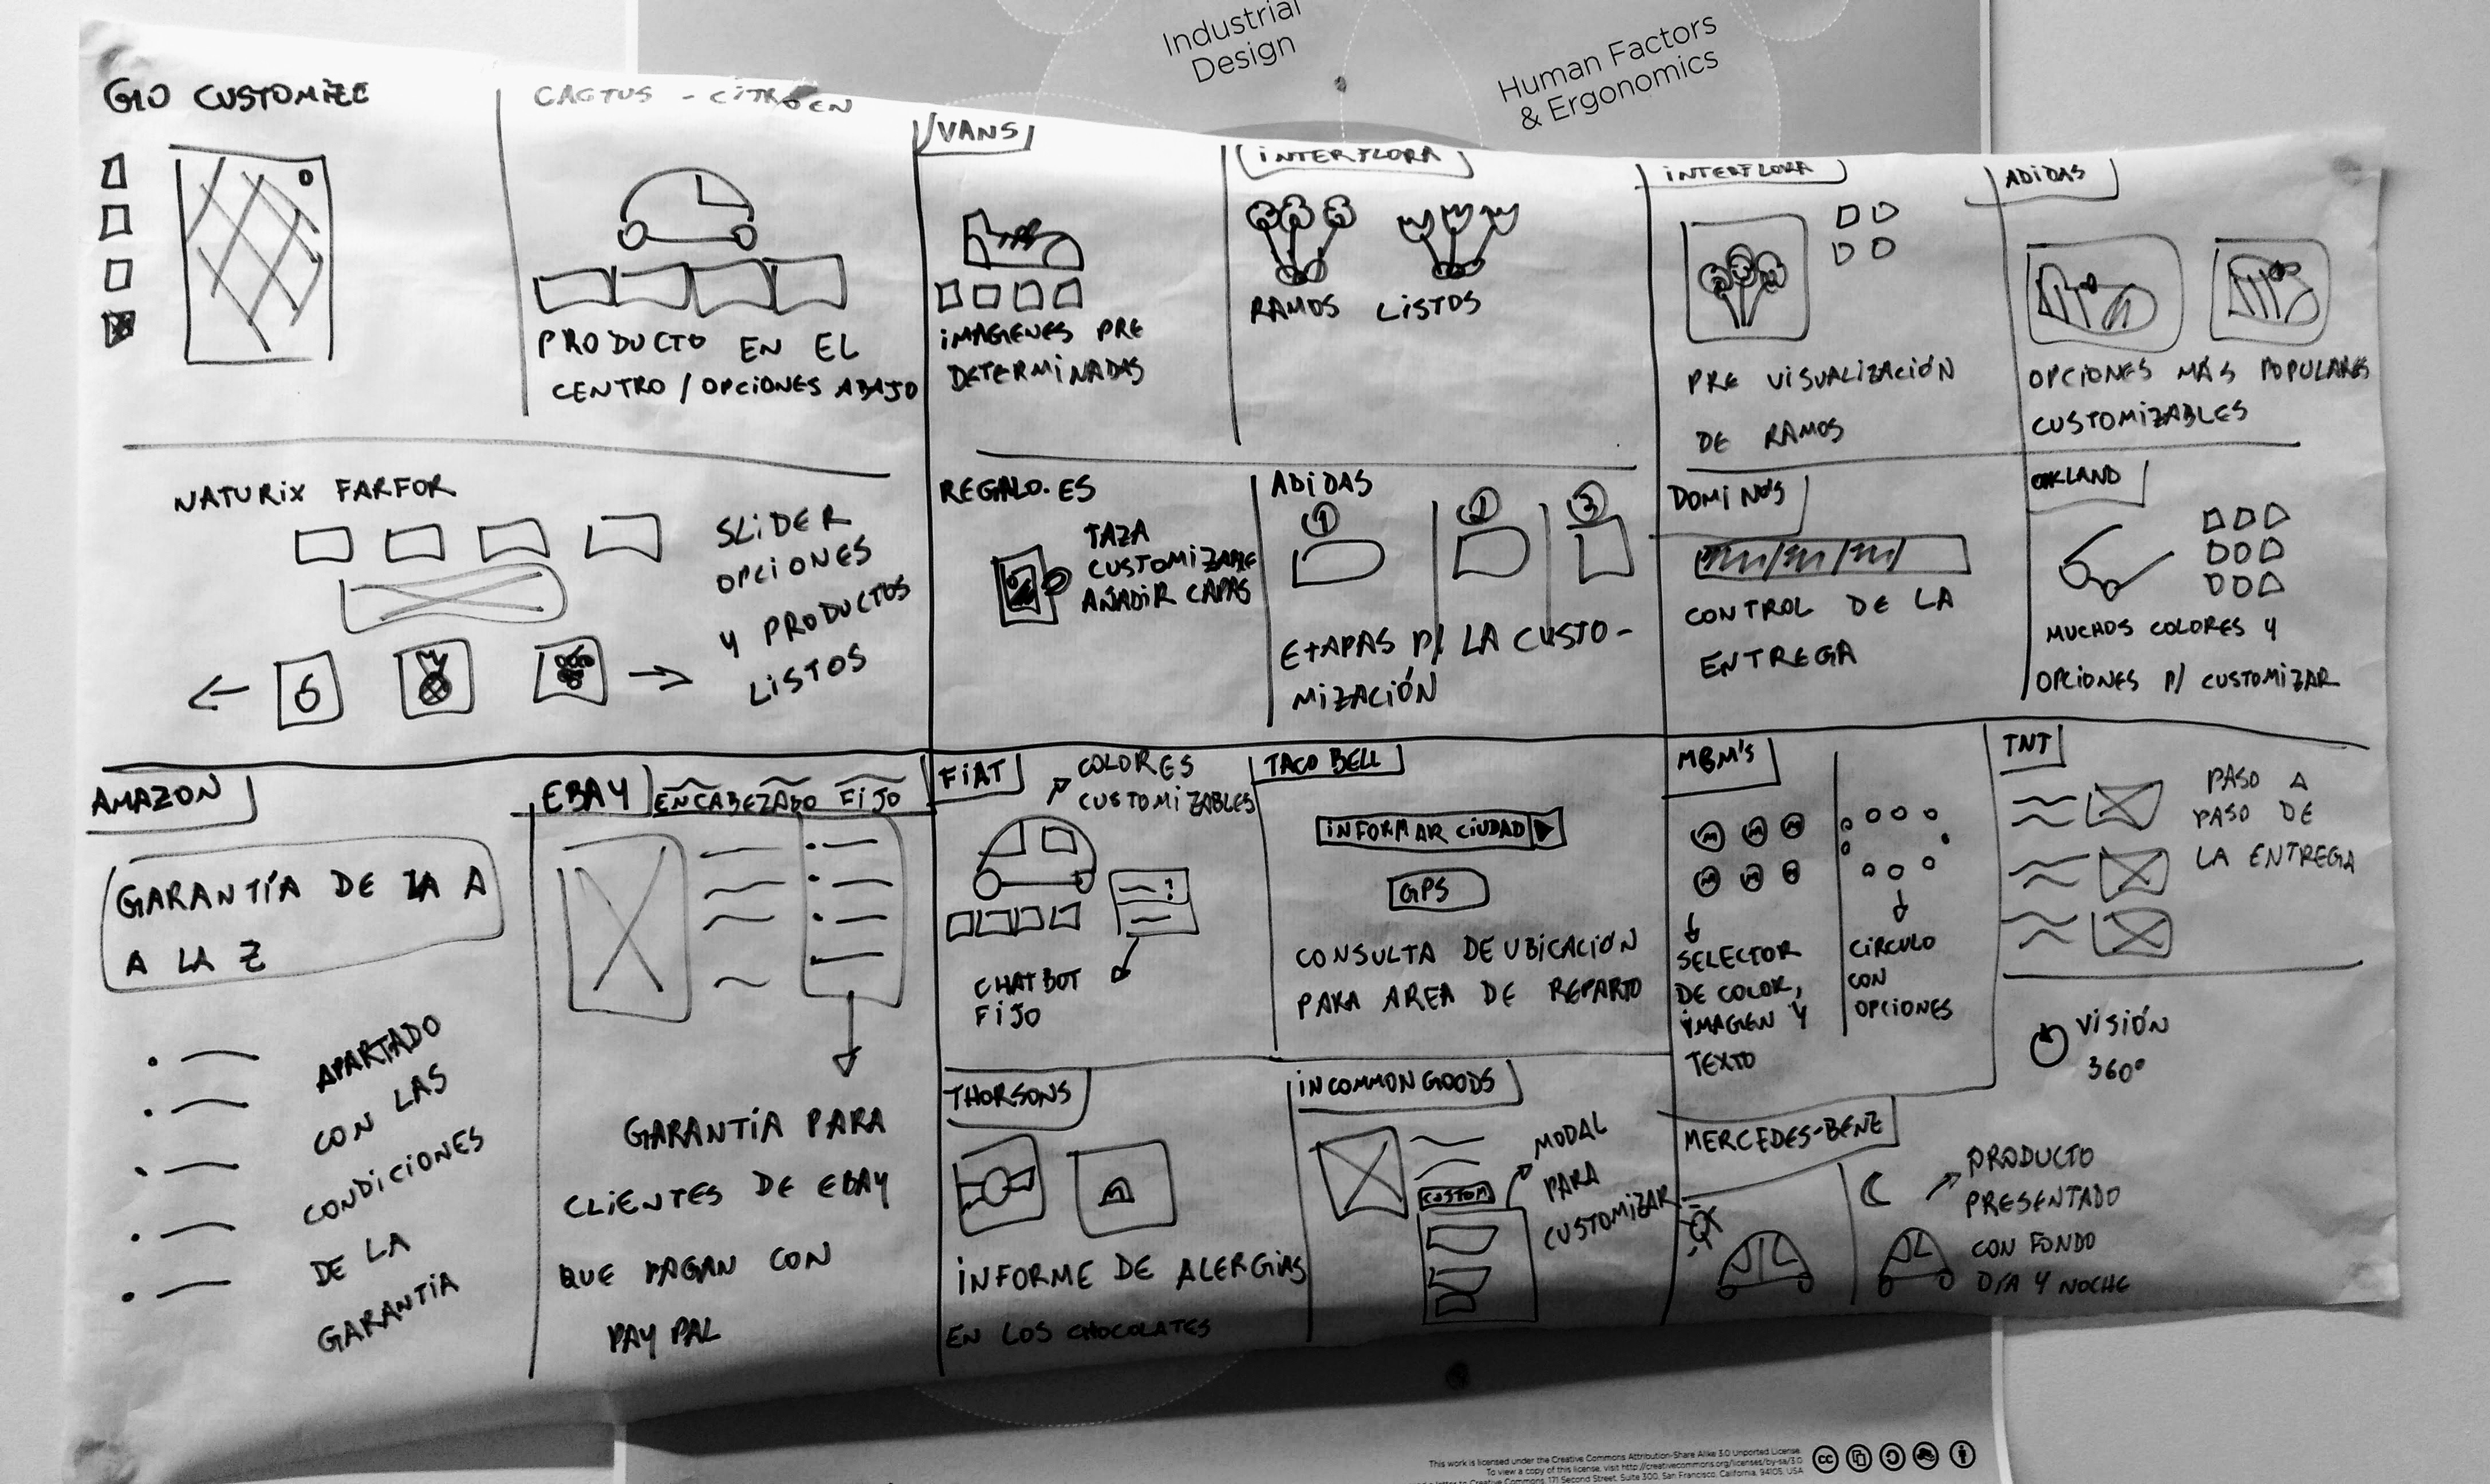 Industrial
Design
Human Factors
& Ergonomics
GIO CUSTOMIZE
CACTUS - CITRÖEN
PRODUCTO EN EL
CENTRO / OPCIONES ABAJO
VANS
IMAGENES PRE
DETERMINADAS
INTERFLORA
RAMOS LISTOS
INTERFLORA
PRE VISUALIZACIÓN
DE RAMOS
ADIDAS
OPCIONES MÁS POPULARES
CUSTOMIZABLES
NATURIX FARFOR
SLIDER
OPCIONES
Y PRODUCTOS
LISTOS
REGALO.ES
TAZA
CUSTOMIZABLE
AÑADIR CAPAS
ADIDAS
1 2 3
ETAPAS P/ LA CUSTO-
MIZACIÓN
DOMINO'S
CONTROL DE LA
ENTREGA
OAKLAND
MUCHOS COLORES Y
OPCIONES P/ CUSTOMIZAR
AMAZON
GARANTÍA DE LA A
A LA Z
APARTADO
CON LAS
CONDICIONES
DE LA
GARANTIA
EBAY
ENCABEZADO FIJO
GARANTÍA PARA
CLIENTES DE EBAY
QUE PAGAN CON
PAY PAL
FIAT
COLORES
CUSTOMIZABLES
CHATBOT
FIJO
TACO BELL
INFORMAR CIUDAD
GPS
CONSULTA DE UBICACIÓN
PARA AREA DE REPARTO
M&M's
SELECTOR
DE COLOR,
IMAGEN Y
TEXTO
CIRCULO
CON
OPCIONES
TNT
PASO A
PASO DE
LA ENTREGA
VISIÓN
360°
THORSONS
INFORME DE ALERGIAS
EN LOS CHOCOLATES
INCOMMON GOODS
CUSTOM
MODAL
PARA
CUSTOMIZAR
MERCEDES-BENZ
PRODUCTO
PRESENTADO
CON FONDO
DÍA Y NOCHE
This work is licensed under the Creative Commons Attribution-Share Alike 3.0 Unported License.
To view a copy of this license, visit http://creativecommons.org/licenses/by-sa/3.0
a letter to Creative Commons, 171 Second Street, Suite 300, San Francisco, California, 94105, USA